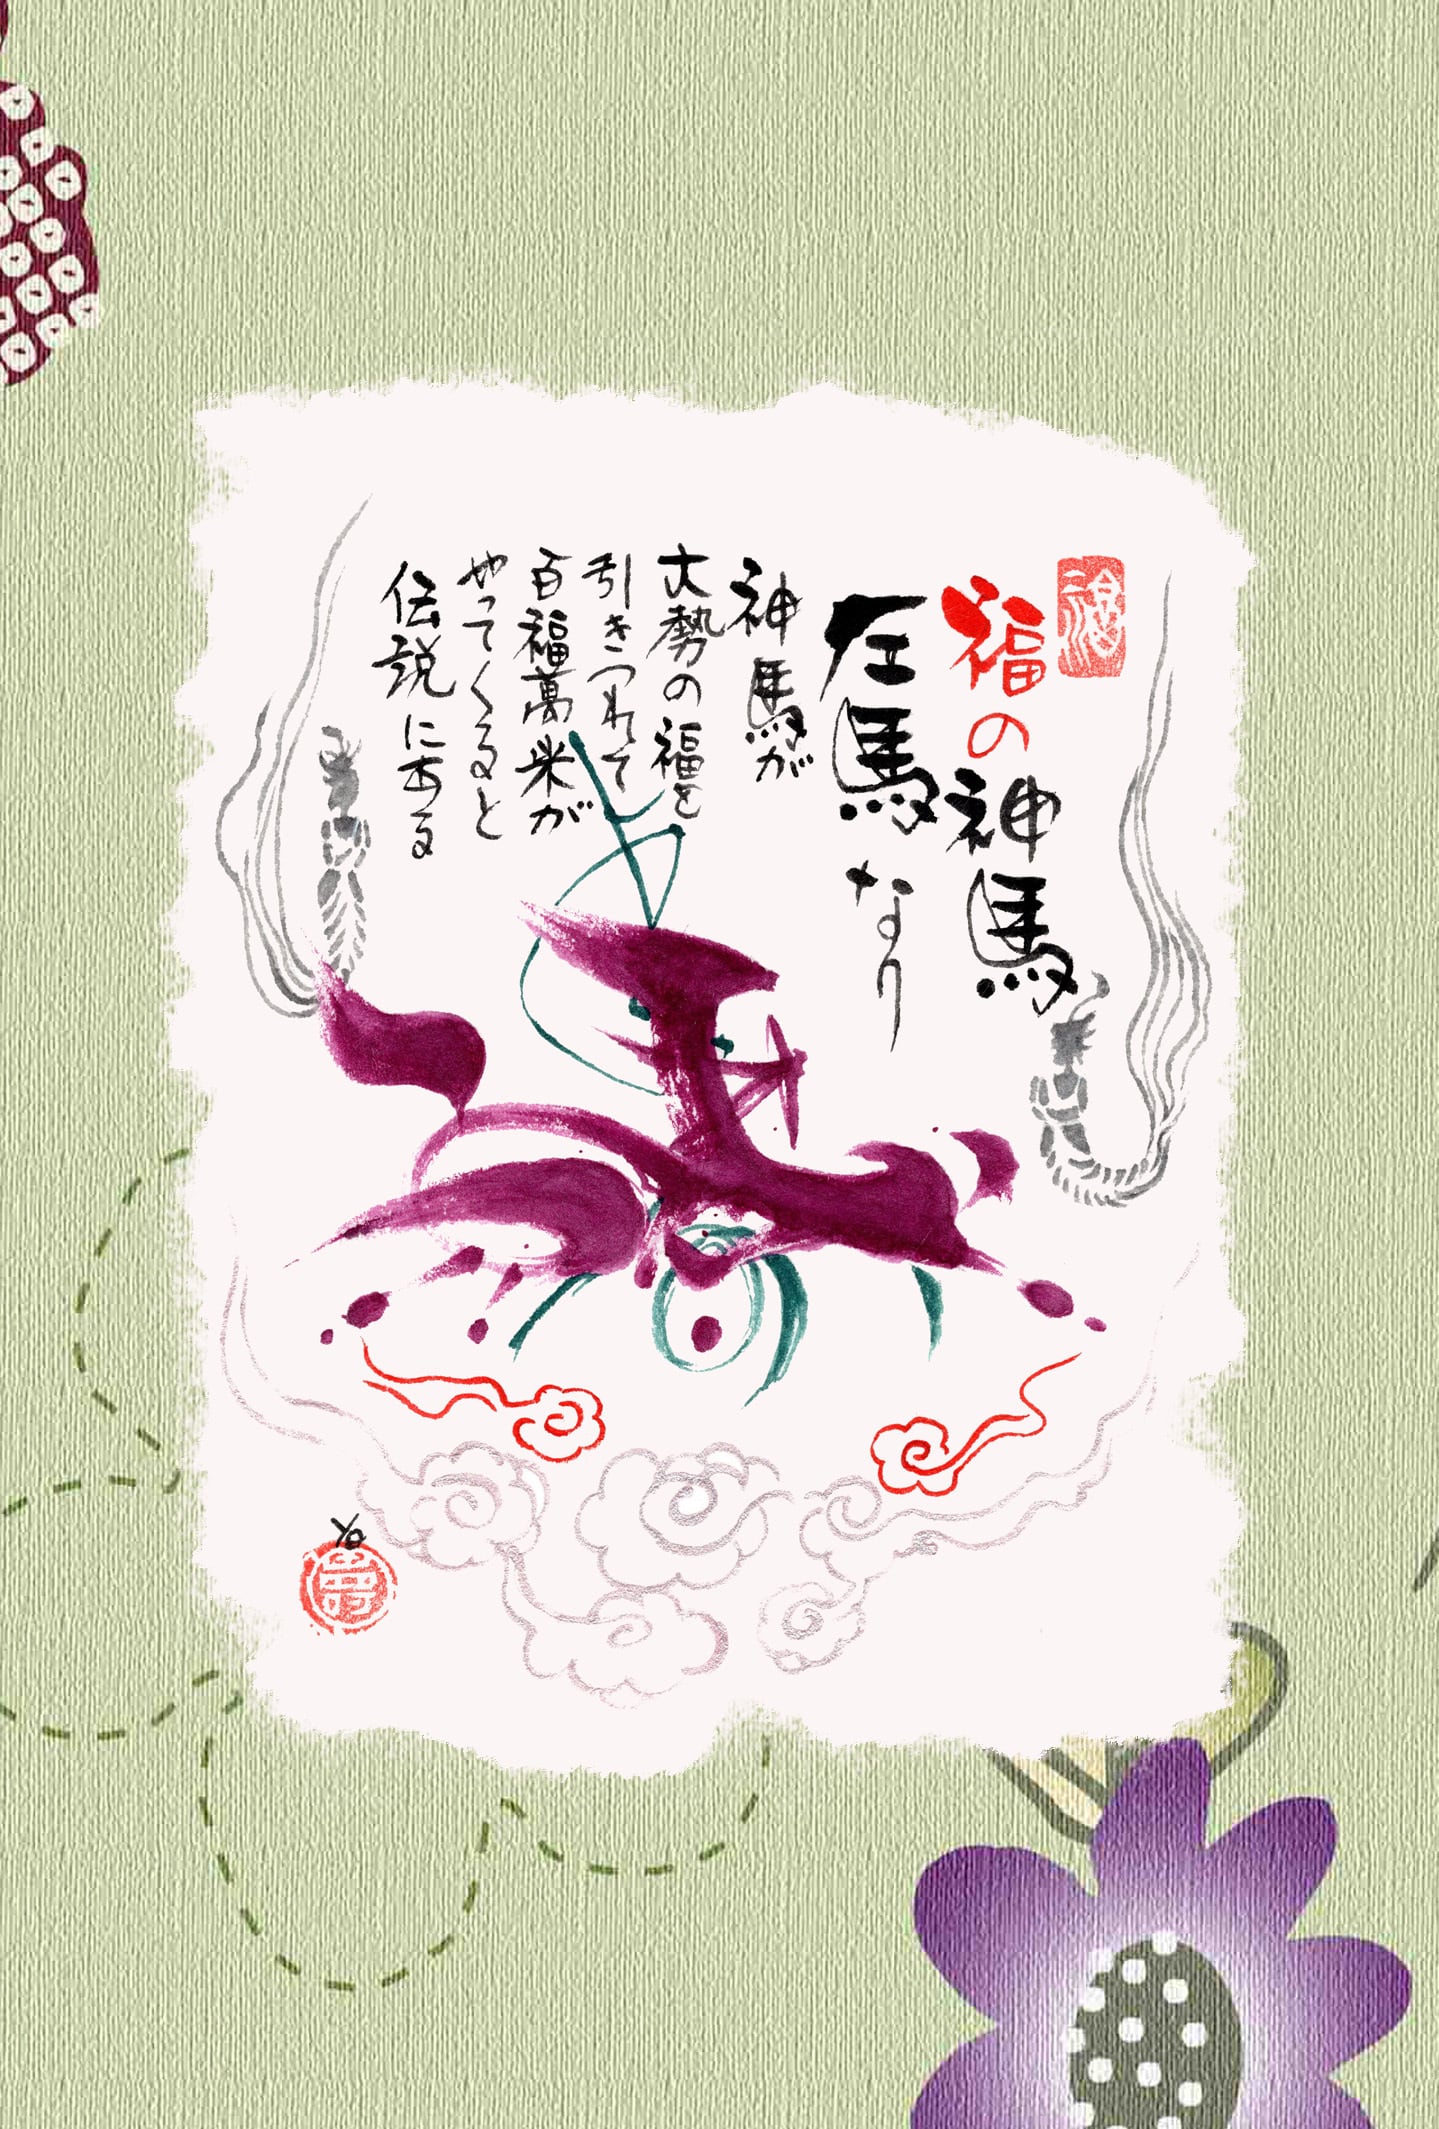 福の神馬
左馬なり
神馬が
大勢の福を
引きつれて
百福萬来が
やってくると
伝説にある
福
Yo
夢